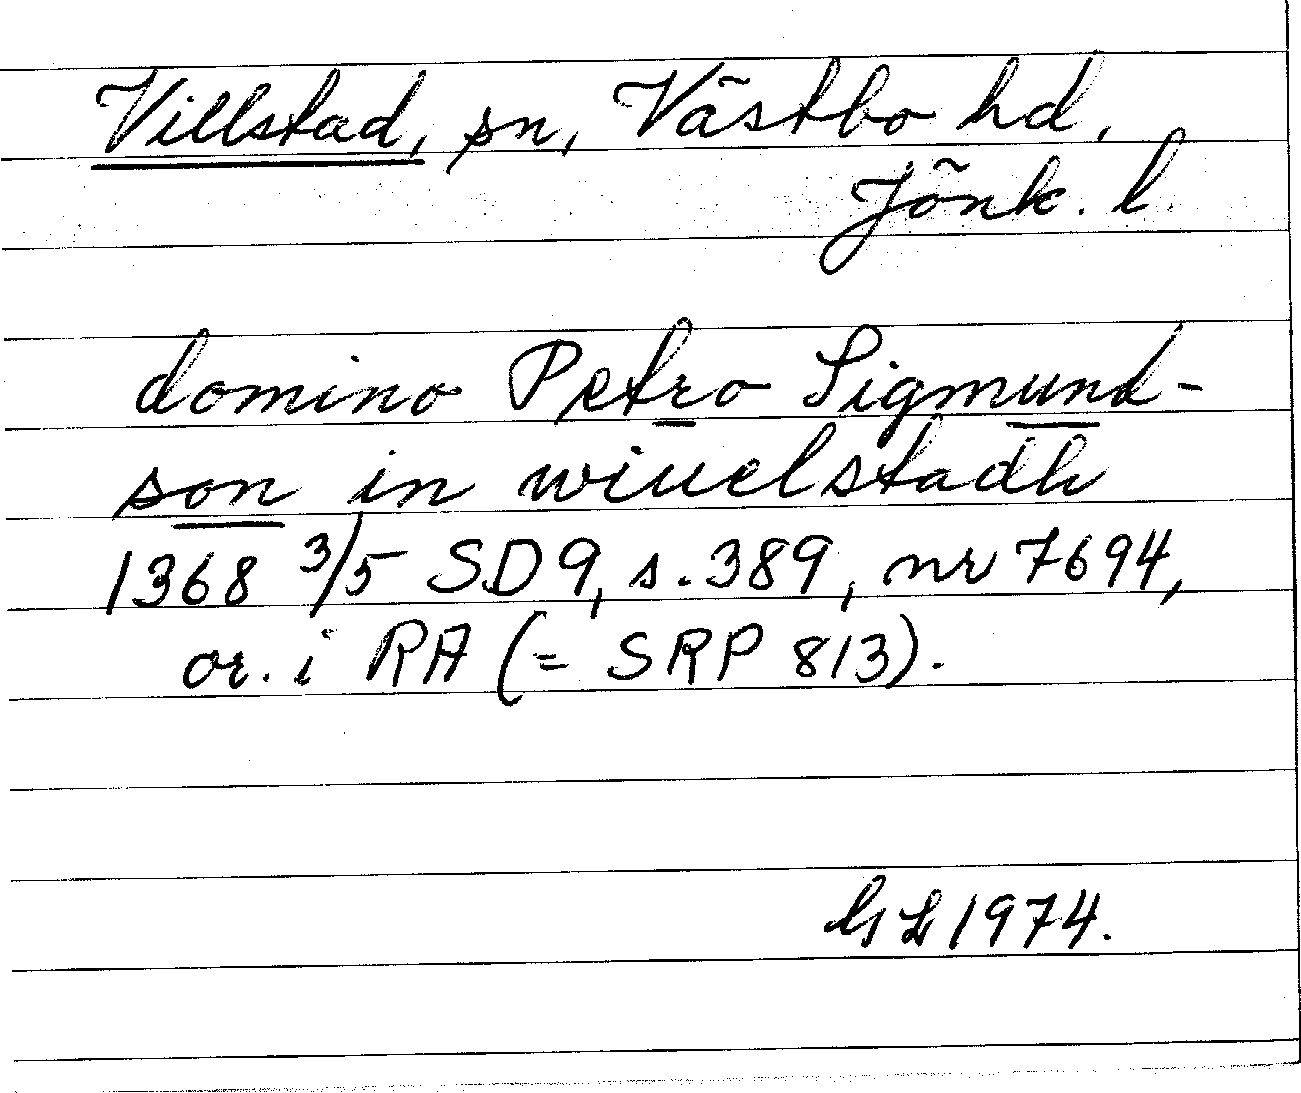 Villstad, sn, Västbo hd,
Jönk. l.
domino Petro Sigmund-
son in wiuelstadh
1368 3/5 SD 9, s. 389, nr 7694,
or. i RA (= SRP 813).
GL 1974.